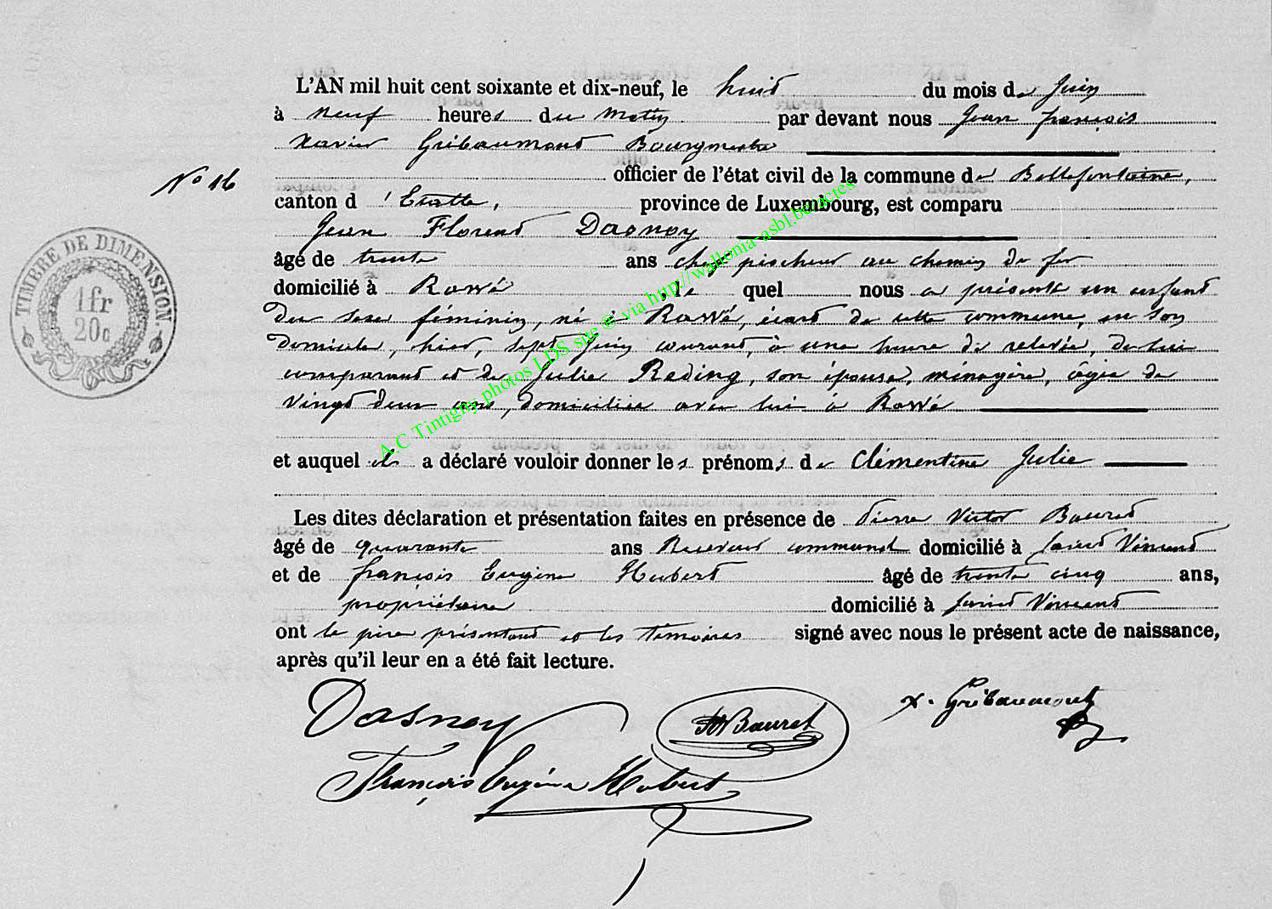 L'AN mil huit cent soixante et dix-neuf, le huit du mois de Juin
à neuf heures du matin par devant nous Jean françois
Xavier Gribaumont Bourgmestre
N° 16
officier de l'état civil de la commune de Bellefontaine,
canton d'Etalle, province de Luxembourg, est comparu
Jean Florent Dasnoy
âgé de trente ans chef piocheur au chemin de fer
domicilié à Rossé, le quel nous a présenté un enfant
du sexe féminin, né à Rossé, écart de cette commune, en son
domicile, hier, sept Juin courant, à une heure de relevée, de lui
comparant et de Julie Reding, son épouse, ménagère, âgée de
vingt deux ans, domiciliée avec lui à Rossé
et auquel il a déclaré vouloir donner les prénoms de Clémentine Julie
Les dites déclaration et présentation faites en présence de Pierre Victor Bauret
âgé de quarante ans Receveur communal domicilié à Saint Vincent
et de françois Eugène Hubert âgé de trente cinq ans,
propriétaire domicilié à Saint Vincent
ont le père présentant et les témoins signé avec nous le présent acte de naissance,
après qu'il leur en a été fait lecture.
Dasnoy Bauret X. Gribaumont
François Eugène Hubert
TIMBRE DE DIMENSION.
1 fr
20c
A.C Tintigny photos LDS site @ via http://wallonia-asbl.be/actes